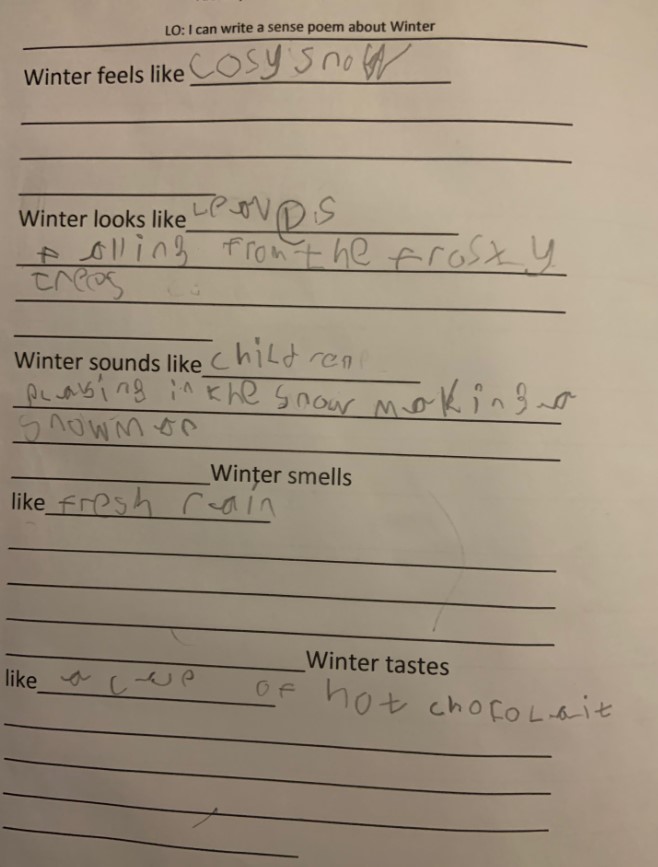 LO: I can write a sense poem about Winter
Winter feels like cosy snow
Winter looks like Leaves
falling from the frosty
trees
Winter sounds like children
playing in the snow making a
snowman
Winter smells
like fresh rain
Winter tastes
like a cup of hot chocolait